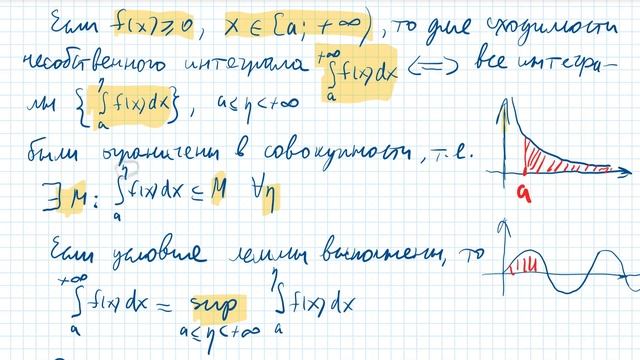 Если f(x) ≥ 0, x ∈ [a; +∞), то для сходимости
несобственного интеграла ∫ₐ⁺∞ f(x)dx <=> все интегра-
лы {∫ₐᑎ f(x)dx}, a ≤ η < +∞
были ограничены в совокупности, т.е.
∃ M: ∫ₐη f(x)dx ≤ M ∀η
a
Если условие леммы выполнены, то
∫ₐ⁺∞ f(x)dx = sup ∫ₐη f(x)dx
a ≤ η < +∞